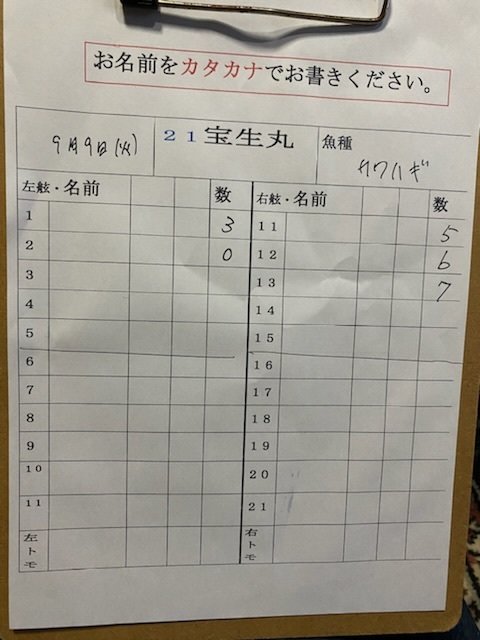 お名前をカタカナでお書きください。
9月9日(火) 21宝生丸 魚種 カワハギ
左舷・名前 数 右舷・名前 数
1 3 11 5
2 0 12 6
3 13 7
4 14
5 15
6 16
7 17
8 18
9 19
10 20
11 21
左トモ 右トモ